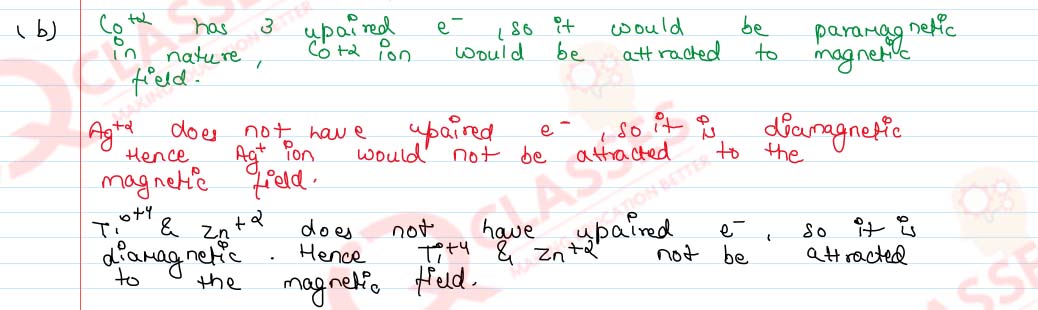 (b) Co+2 has 3 upaired e-, so it would be paramagnetic
in nature, Co+2 ion would be attracted to magnetic
field.
Ag+2 does not have upaired e-, so it is diamagnetic
Hence Ag+ ion would not be attracted to the
magnetic field.
Ti+4 & Zn+2 does not have upaired e-, so it is
diamagnetic. Hence Ti+4 & Zn+2 not be attracted
to the magnetic field.